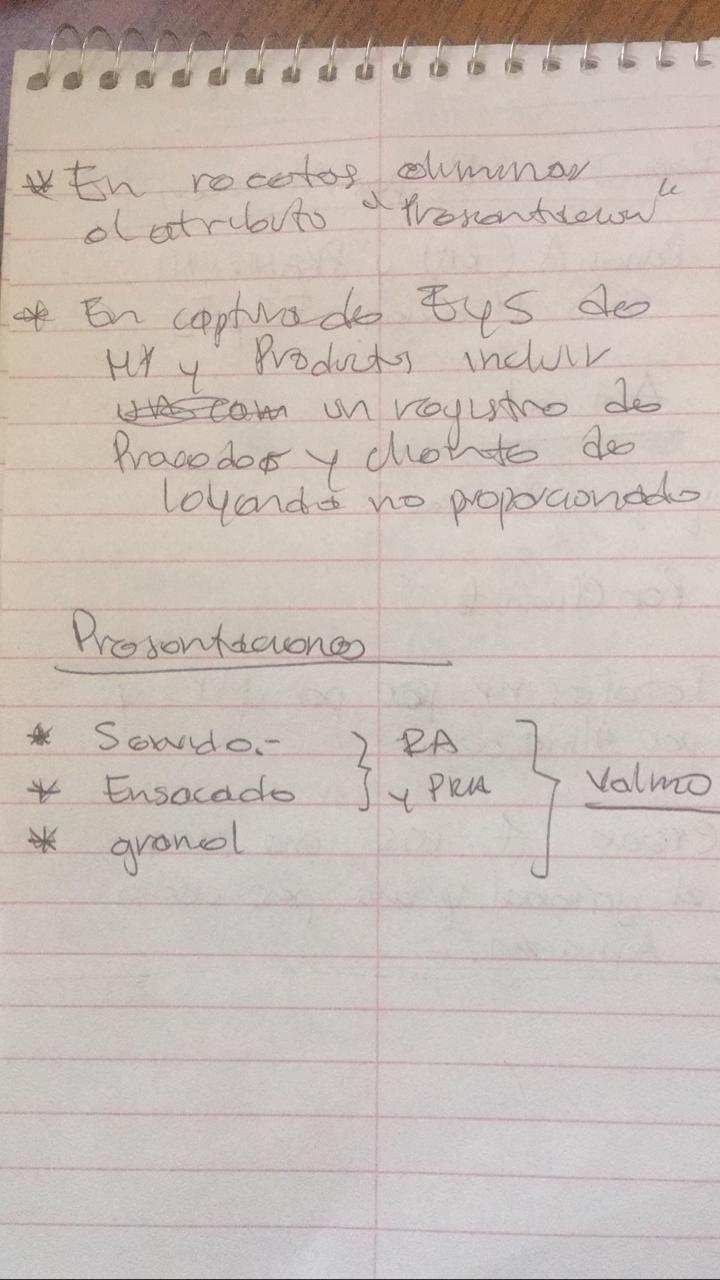 * En recetas eliminar
el atributo "Presentación"
* En captura de E y S de
MP y Productos incluir
un registro de
y cliente de
leyenda no proporcionado
Presentaciones
* Servido.- } RA
* Ensacado } y PRA } Valmo
* granel